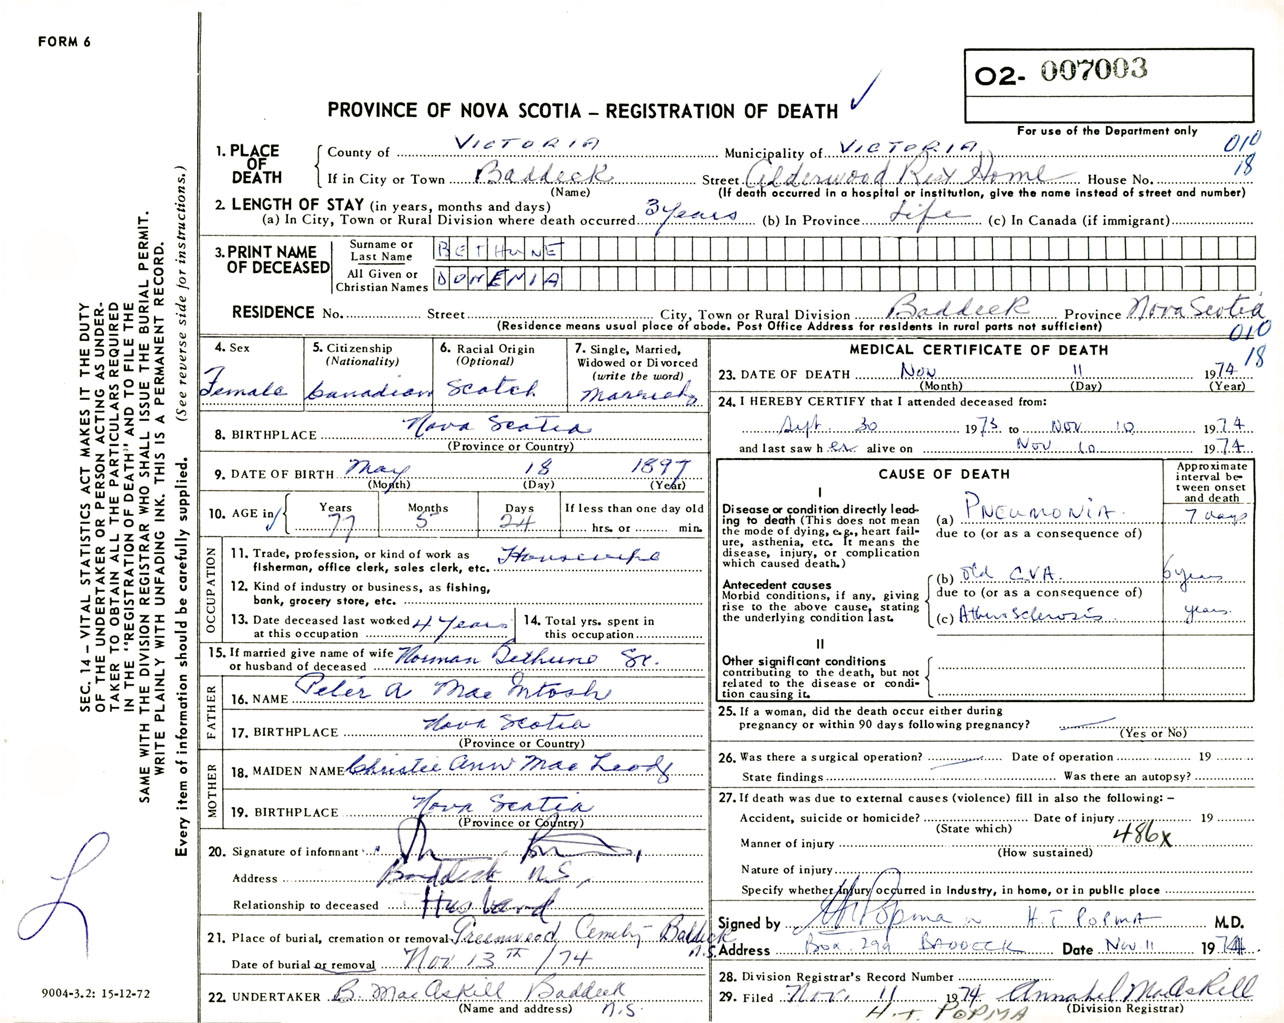 FORM 6
O2- 007003
PROVINCE OF NOVA SCOTIA – REGISTRATION OF DEATH ✓
For use of the Department only
1. PLACE OF DEATH
County of VICTORIA Municipality of VICTORIA 010
If in City or Town Baddeck Street Alderwood Rest Home House No. 18
(Name) (If death occurred in a hospital or institution, give the name instead of street and number)
2. LENGTH OF STAY (in years, months and days)
(a) In City, Town or Rural Division where death occurred 3 years (b) In Province Life (c) In Canada (if immigrant)
3. PRINT NAME OF DECEASED
Surname or Last Name BETHUNE
All Given or Christian Names DOHEMIA
RESIDENCE No. Street City, Town or Rural Division Baddeck Province Nova Scotia
(Residence means usual place of abode. Post Office Address for residents in rural parts not sufficient)
010
18
4. Sex
Female
5. Citizenship
(Nationality)
Canadian
6. Racial Origin
(Optional)
Scotch
7. Single, Married,
Widowed or Divorced
(write the word)
Married
8. BIRTHPLACE Nova Scotia
(Province or Country)
9. DATE OF BIRTH May 18 1897
(Month) (Day) (Year)
10. AGE in
Years Months Days If less than one day old
77 5 24 hrs. or min.
OCCUPATION
11. Trade, profession, or kind of work as
fisherman, office clerk, sales clerk, etc. Housewife
12. Kind of industry or business, as fishing,
bank, grocery store, etc.
13. Date deceased last worked
at this occupation 4 years
14. Total yrs. spent in
this occupation
15. If married give name of wife
or husband of deceased Norman Bethune Sr.
FATHER
16. NAME Peter A MacIntosh
17. BIRTHPLACE Nova Scotia
(Province or Country)
MOTHER
18. MAIDEN NAME Christie Ann MacLeod
19. BIRTHPLACE Nova Scotia
(Province or Country)
20. Signature of informant
Address Baddeck N.S.
Relationship to deceased Husband
21. Place of burial, cremation or removal Greenwood Cemetry Baddeck
N.S.
Date of burial or removal Nov 13th/74
22. UNDERTAKER B. MacAskill Baddeck
(Name and address) N.S.
MEDICAL CERTIFICATE OF DEATH
23. DATE OF DEATH Nov 11 1974
(Month) (Day) (Year)
24. I HEREBY CERTIFY that I attended deceased from:
Sept. 30 1973 to Nov 10 1974
and last saw her alive on Nov 10 1974
CAUSE OF DEATH
Approximate
interval be-
tween onset
and death
I
Disease or condition directly lead-
ing to death (This does not mean
the mode of dying, e.g., heart fail-
ure, asthenia, etc. It means the
disease, injury, or complication
which caused death.)
(a) PNEUMONIA. 7 days
due to (or as a consequence of)
Antecedent causes
Morbid conditions, if any, giving
rise to the above cause, stating
the underlying condition last.
(b) old C.V.A. 6 years
due to (or as a consequence of)
(c) Atherosclerosis years.
II
Other significant conditions
contributing to the death, but not
related to the disease or condi-
tion causing it.
25. If a woman, did the death occur either during
pregnancy or within 90 days following pregnancy?
(Yes or No)
26. Was there a surgical operation? Date of operation 19
State findings Was there an autopsy?
27. If death was due to external causes (violence) fill in also the following: –
Accident, suicide or homicide? Date of injury 19
(State which)
486x
Manner of injury
(How sustained)
Nature of injury
Specify whether injury occurred in Industry, in home, or in public place
Signed by H.T. Popma H.T. POPMA M.D.
Address Box 299 BADDECK Date Nov. 11 1974
28. Division Registrar's Record Number
29. Filed Nov. 11 1974 Annabel MacAskill
(Division Registrar)
H.T. POPMA
SEC. 14 – VITAL STATISTICS ACT MAKES IT THE DUTY
OF THE UNDERTAKER OR PERSON ACTING AS UNDER-
TAKER TO OBTAIN ALL THE PARTICULARS REQUIRED
IN THE "REGISTRATION OF DEATH" AND TO FILE THE
SAME WITH THE DIVISION REGISTRAR WHO SHALL ISSUE THE BURIAL PERMIT.
WRITE PLAINLY WITH UNFADING INK. THIS IS A PERMANENT RECORD.
Every item of information should be carefully supplied. (See reverse side for instructions.)
L
9004-3.2: 15-12-72